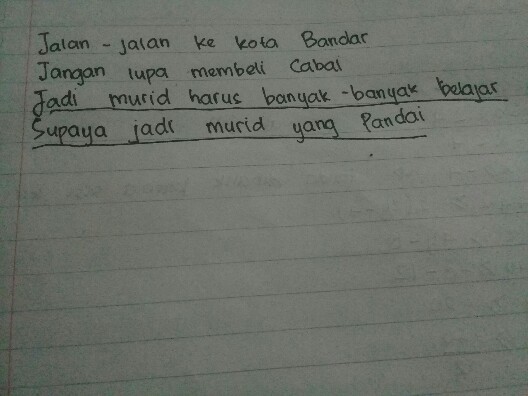 Jalan - jalan ke kota Bandar
Jangan lupa membeli Cabai
Jadi murid harus banyak - banyak belajar
Supaya jadi murid yang Pandai